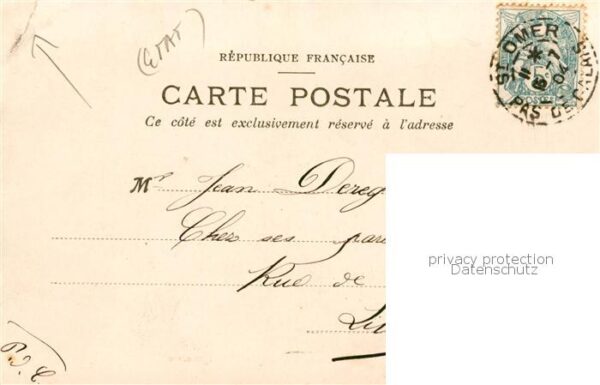 (ETAT)
RÉPUBLIQUE FRANÇAISE
CARTE POSTALE
Ce côté est exclusivement réservé à l'adresse
ST OMER
PAS DE CALAIS
5
POSTES
Mr Jean Dereg
Chez ses pare
Rue de
Li
privacy protection
Datenschutz
P.V.C.